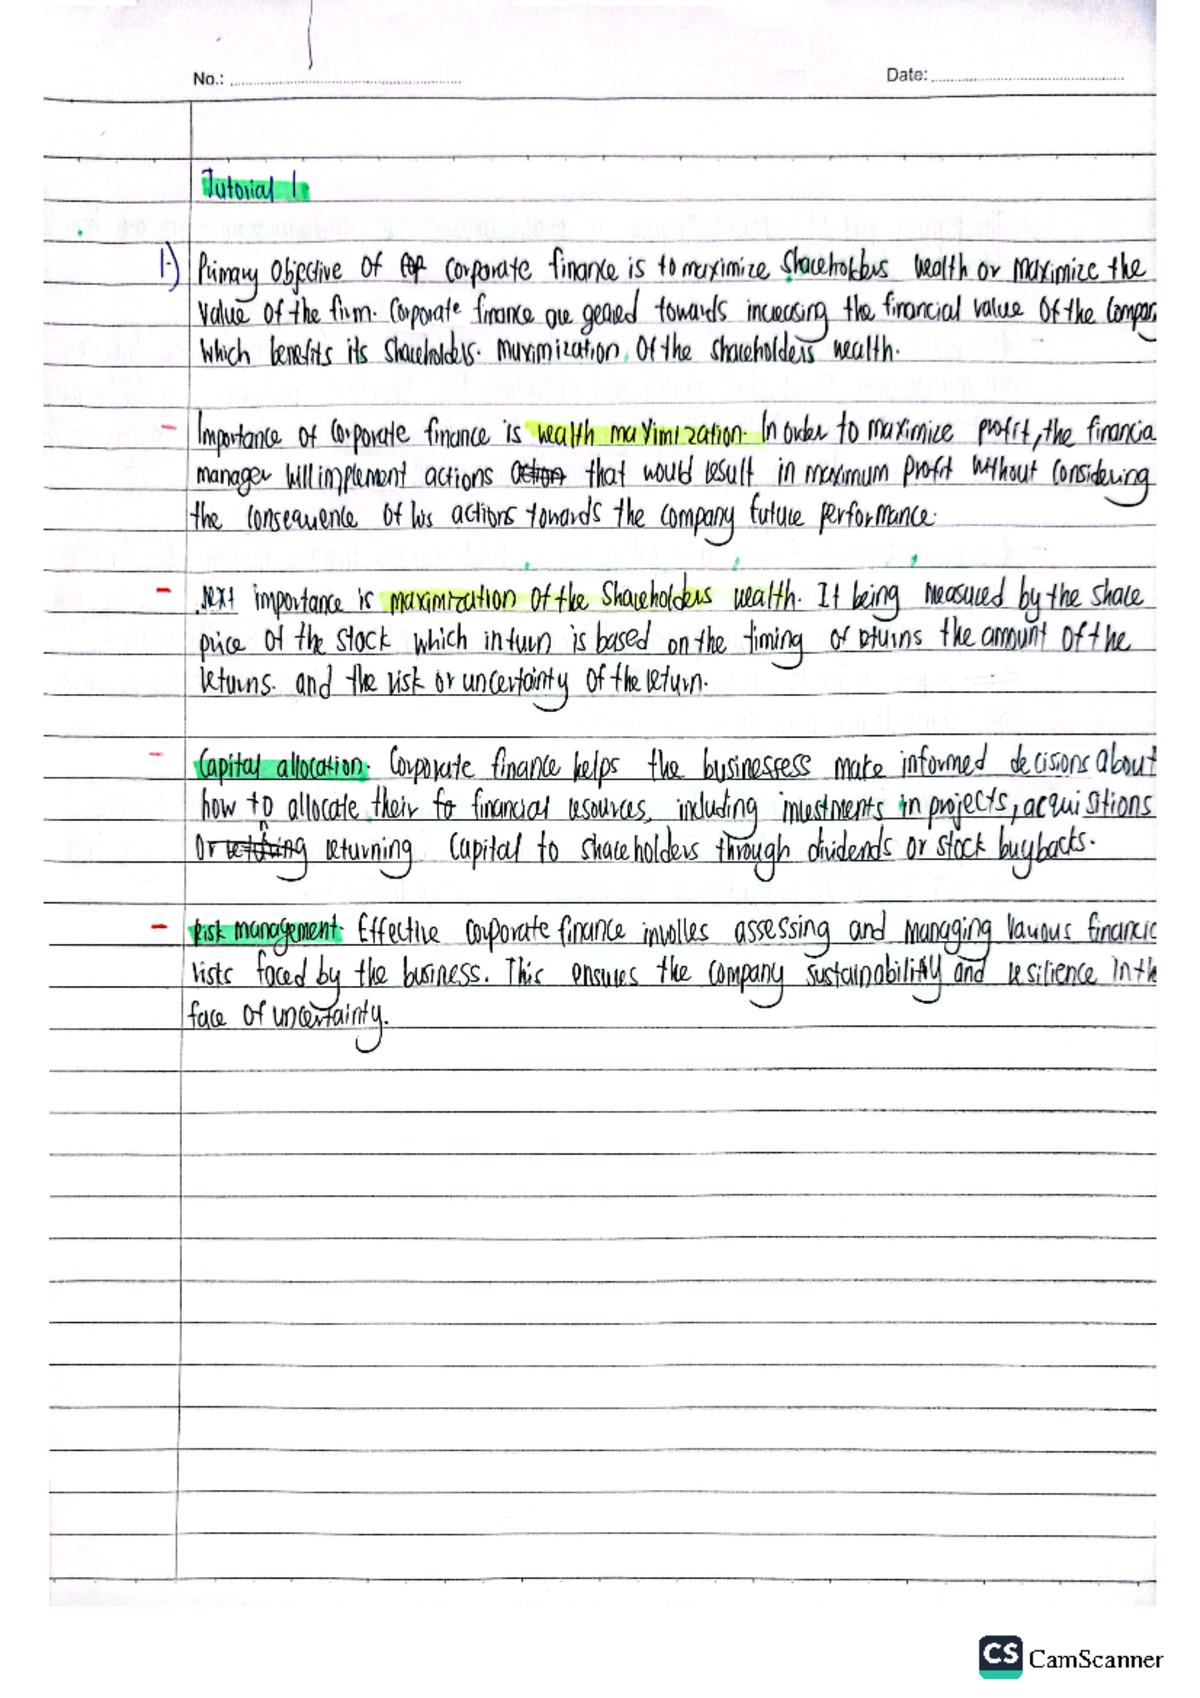 No.:
Date:
Tutorial 1
1.) Primary Objective of for corporate finance is to maximize shareholders wealth or maximize the
value of the firm. Corporate finance are geared towards increasing the financial value of the Compan
which benefits its shareholders. Muximization of the shareholders wealth.
- Importance of corporate finance is wealth maximization. In order to maximize profit, the financia
manager will implement actions action that would result in maximum profit without considering
the consequence of his actions towards the company future performance.
- Next importance is maximization of the shareholders wealth. It being measured by the share
price of the stock which inturn is based on the timing of returns the amount of the
returns. and the risk or uncertainty of the return.
- Capital allocation. Corporate finance helps the businessess make informed decisions about
how to allocate their fo financial resources, including investments in projects, acquisitions
or returning capital to shareholders through dividends or stock buybacks.
- Risk management. Effective corporate finance involves assessing and managing various financic
risks faced by the business. This ensures the company sustainability and resilience in th
face of uncertainty.
CS CamScanner